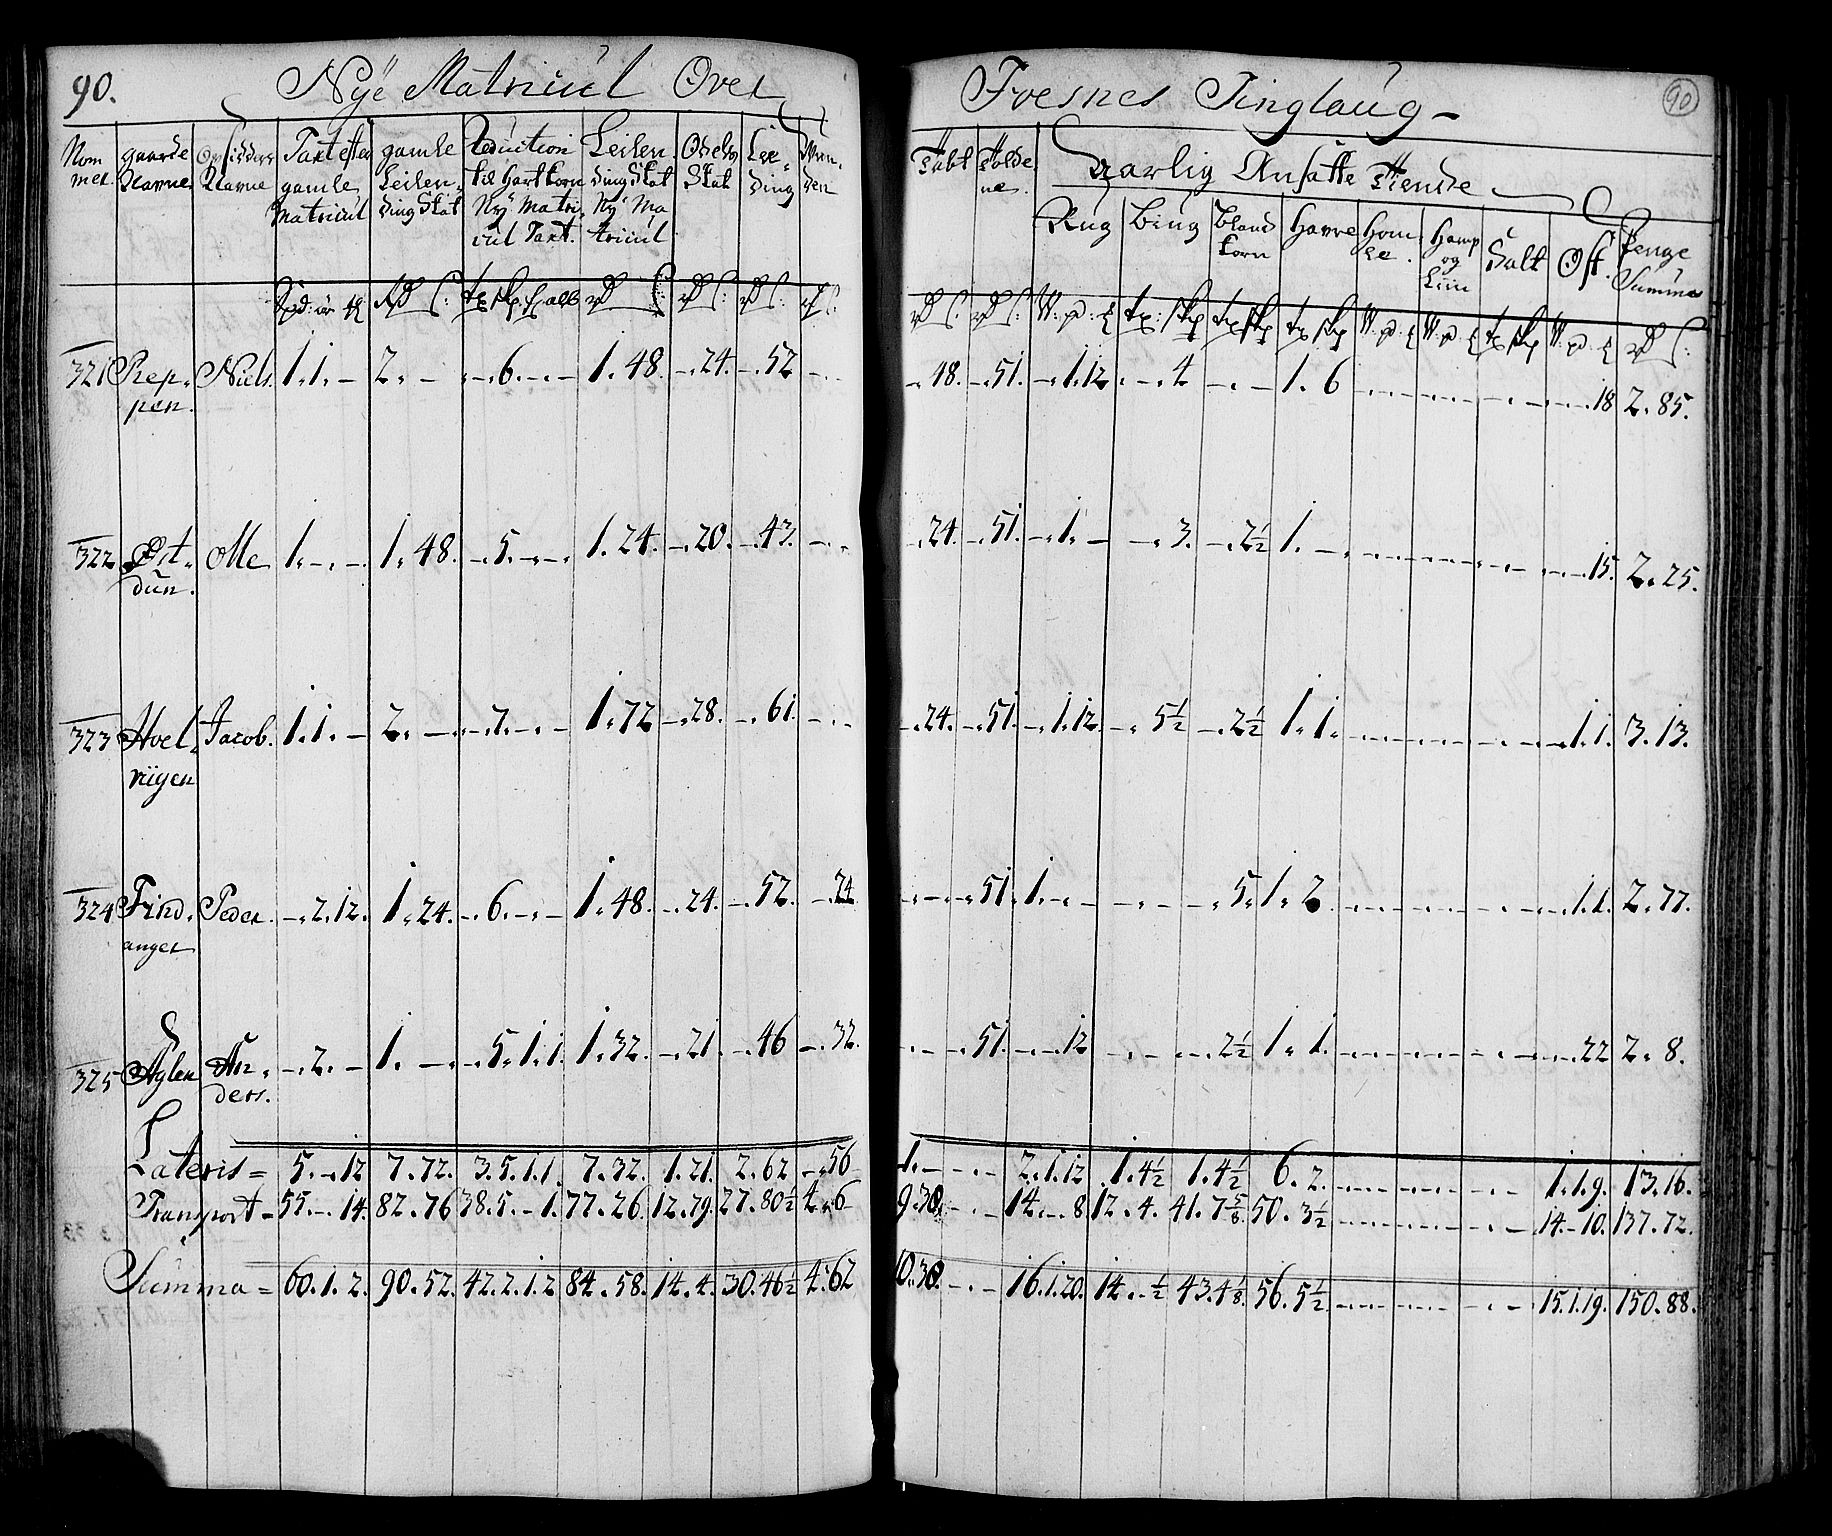 90. Nye Matricul Over Fosnes Tinglaug – 90
Nom mer | gaarde Navne | Opsidders Navne | Taxt efter gamle Matricul | gamle Leilending Skat | Reduction til Hartkorn Ny Matricul Taxt. | Leilending Skat Ny Matricul | Odels Skat | Lee ding | Wisøren | Tabt | Folde ne. | Aarlig Ansatte Tiende
Rug | Biug | Bland korn | Havre | Homle | Hamp og Liin | Salt | Ost. | Penge Summa
321 Reppen. Niels. 1. 1. – 2. – –. 6. –. – 1. 48. –. 24. –. 52 –. – –. 48. –. 51. –. 1. 12 –. 4 –. – 1. 6 18 2. 85.
322 Østdun. Olle 1. –. – 1. 48. –. 5. –. – 1. 24. –. 20. –. 43. –. – –. 24. –. 51. –. 1. – –. 3. –. 2½ 1. – 15. 2. 25.
323 Hoelviigen Jacob. 1. 1. – 2. – –. 7. –. – 1. 72 –. 28. –. 61. –. – –. 24. –. 51. –. 1. 12. –. 5½ –. 2½ 1. 1. 1. 1. 3. 13.
324 Find anger Peder. –. 2. 12. 1. 24. –. 6. –. – 1. 48. –. 24. –. 52. –. 24. –. – –. 51. 1. –. – –. – –. 5. 1. 2 1. 1. 2. 77.
325 Aglen Anders. –. 2. – 1. – –. 5. 1. 1. 1. 32. –. 21. –. 46 –. 32. –. – –. 51. –. –. 12 –. – –. 2½ 1. 1. 22 2. 8.
Lateris = 5. –. 12 7. 72. 3. 5. 1. 1. 7. 32. 1. 21. 2. 62 –. 56 1. – –. – 2. 1. 12 1. 4½ 1. 4½ 6. 2. 1. 1. 9. 13. 16.
Transport = 55. –. 14. 82. 76 38. 5. –. 1. 77. 26. 12. 79. 27. 80½ 4. 6 9. 30. –. – 14. –. 8 12. 4. 41. 7⅝ 50. 3½ 14. –. 10. 137. 72.
Summa = 60. 1. 2. 90. 52. 42. 2. 1. 2 84. 58. 14. 4. 30. 46½ 4. 62 10. 30. –. – 16. 1. 20. 14. –½ 43. 4⅛ 56. 5½ 15. 1. 19. 150. 88.